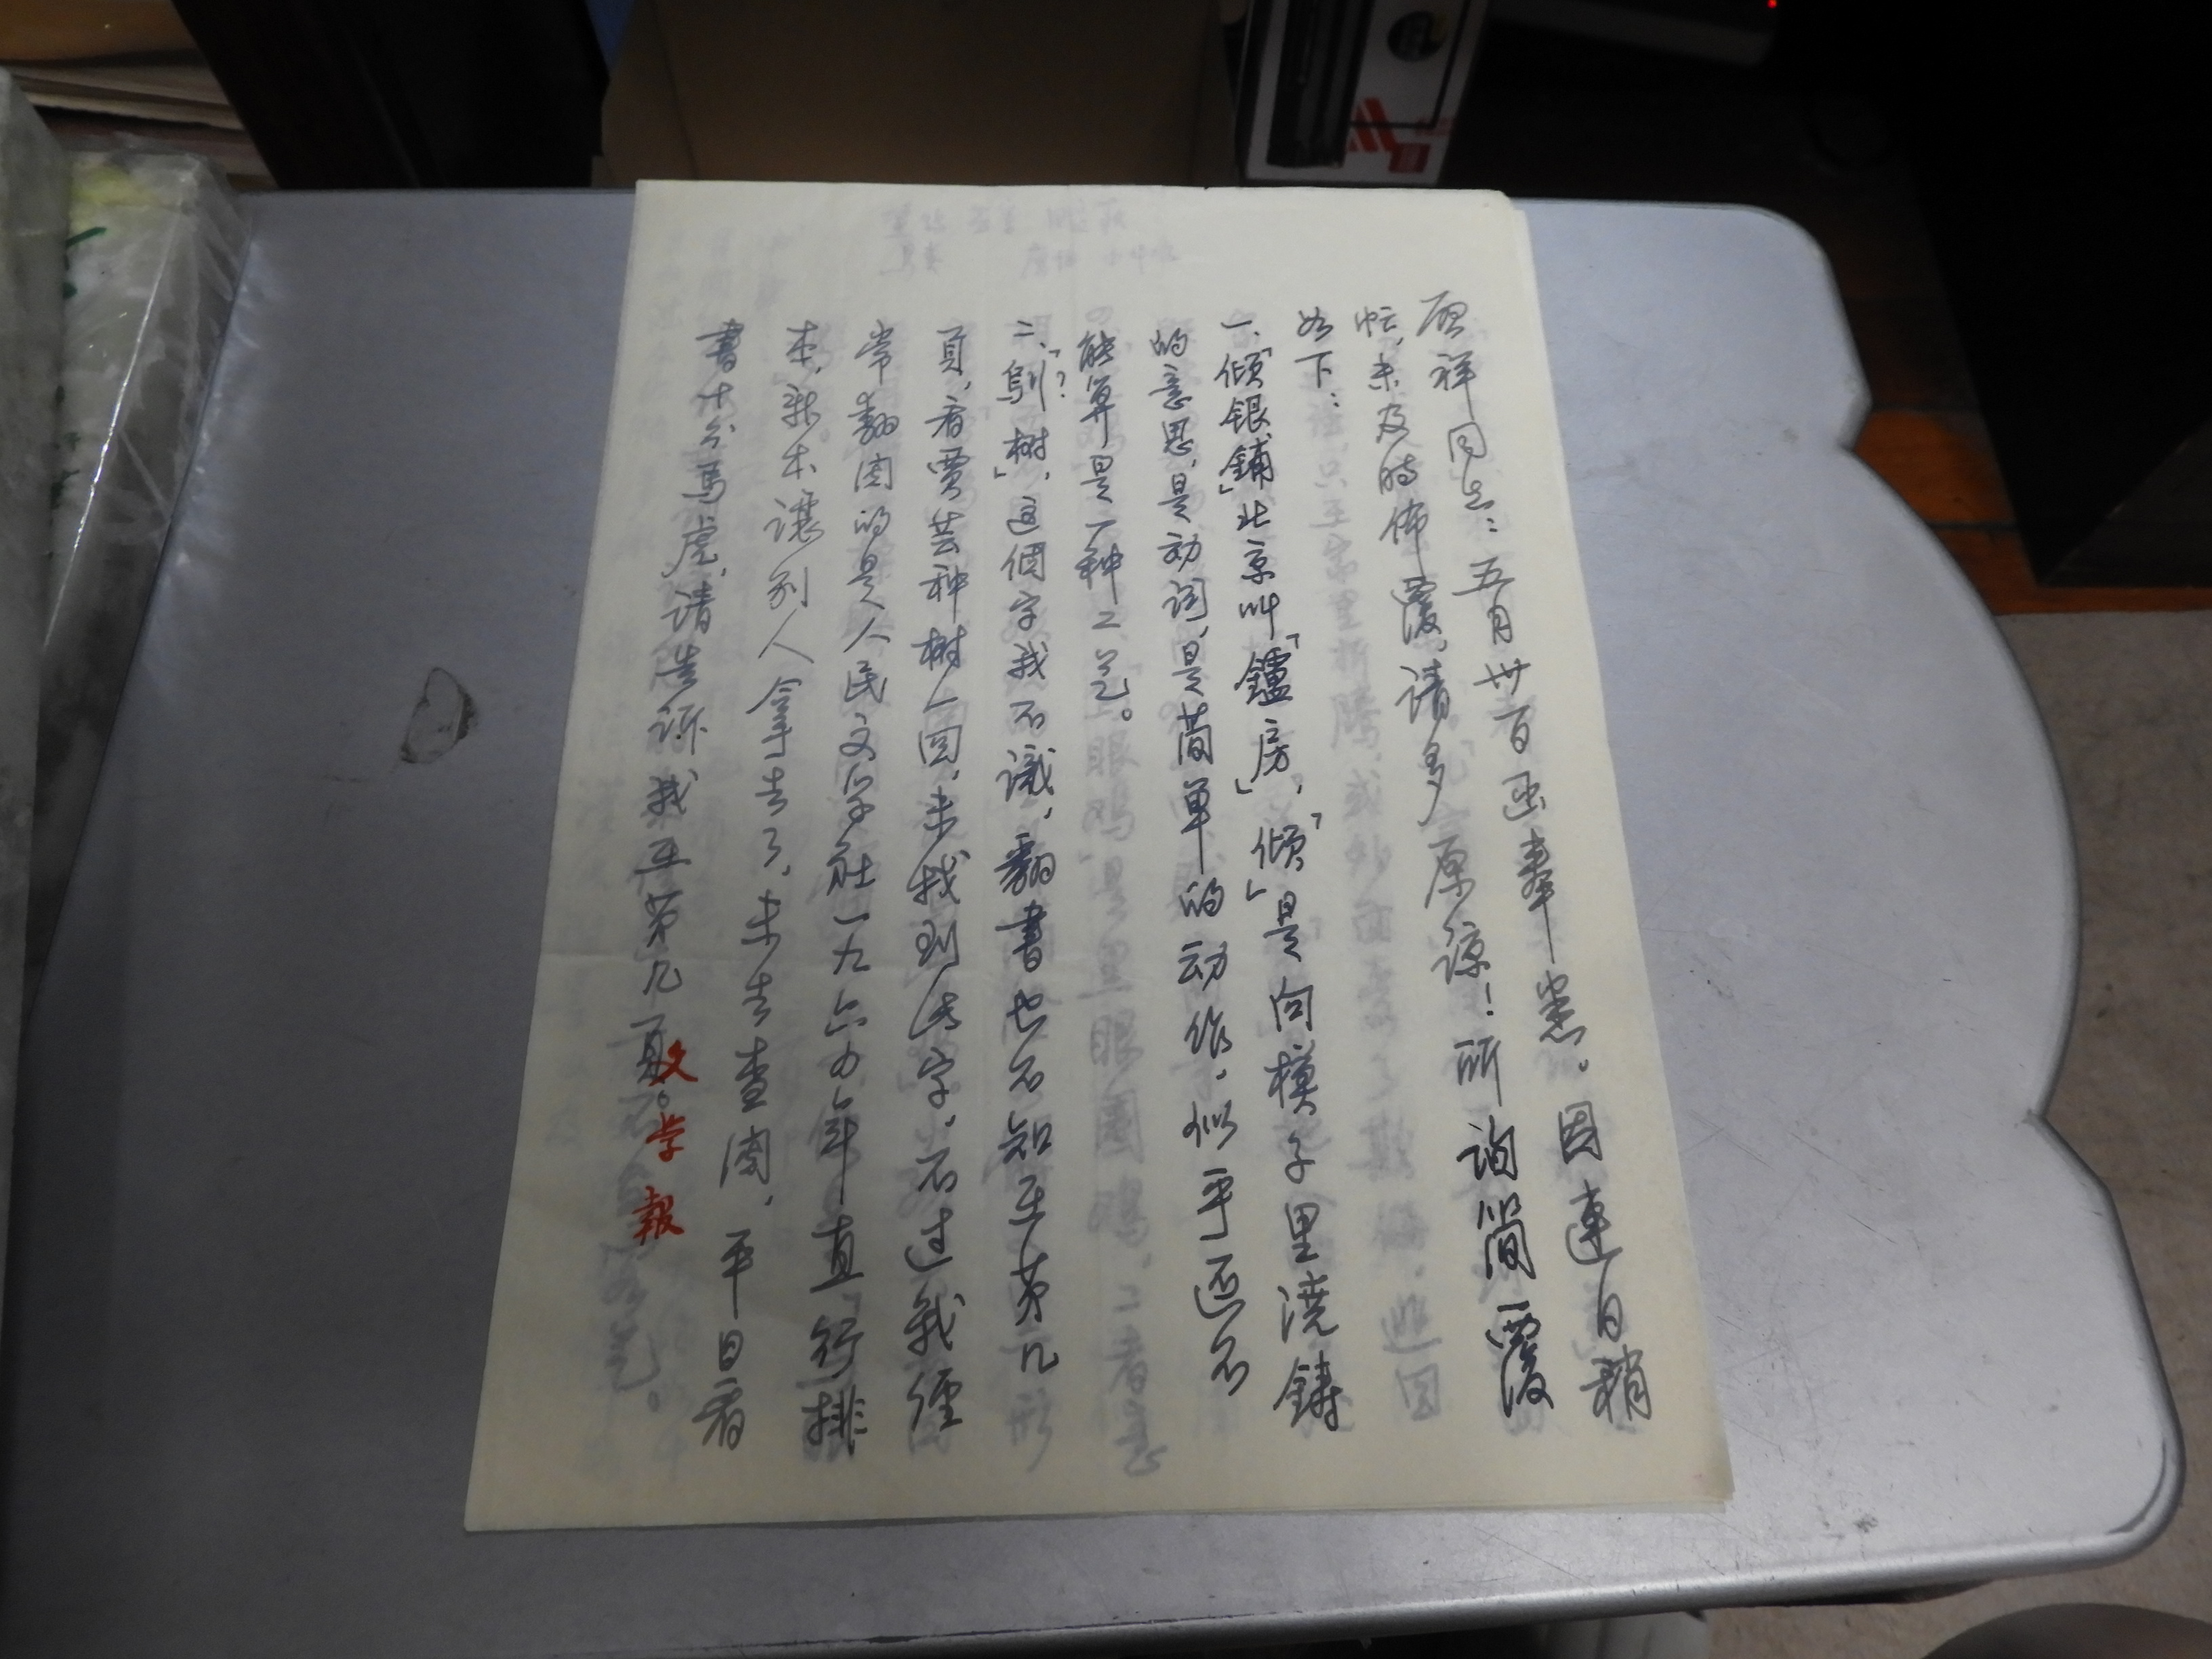 祥同志：五月卅日函奉悉。因連日稍
忙，未及時佈覆，请多原諒！所询简覆
如下：
一、「傾银鋪」北京叫「鑪房」，「傾」是向模子里澆鑄
的意思，是动词，是简单的动作。似乎还不
能算是一种工艺。
二、「馴？树」，這個字我不識，翻書也不知在第几
頁，看賈芸种树一回，未找到此字。不过我經
常翻阅的是人民文学社一九六〇年直行排
本，新本讓别人拿去了，未去查阅，平日看
書十分馬虎，请告诉我在第几頁。
文学報